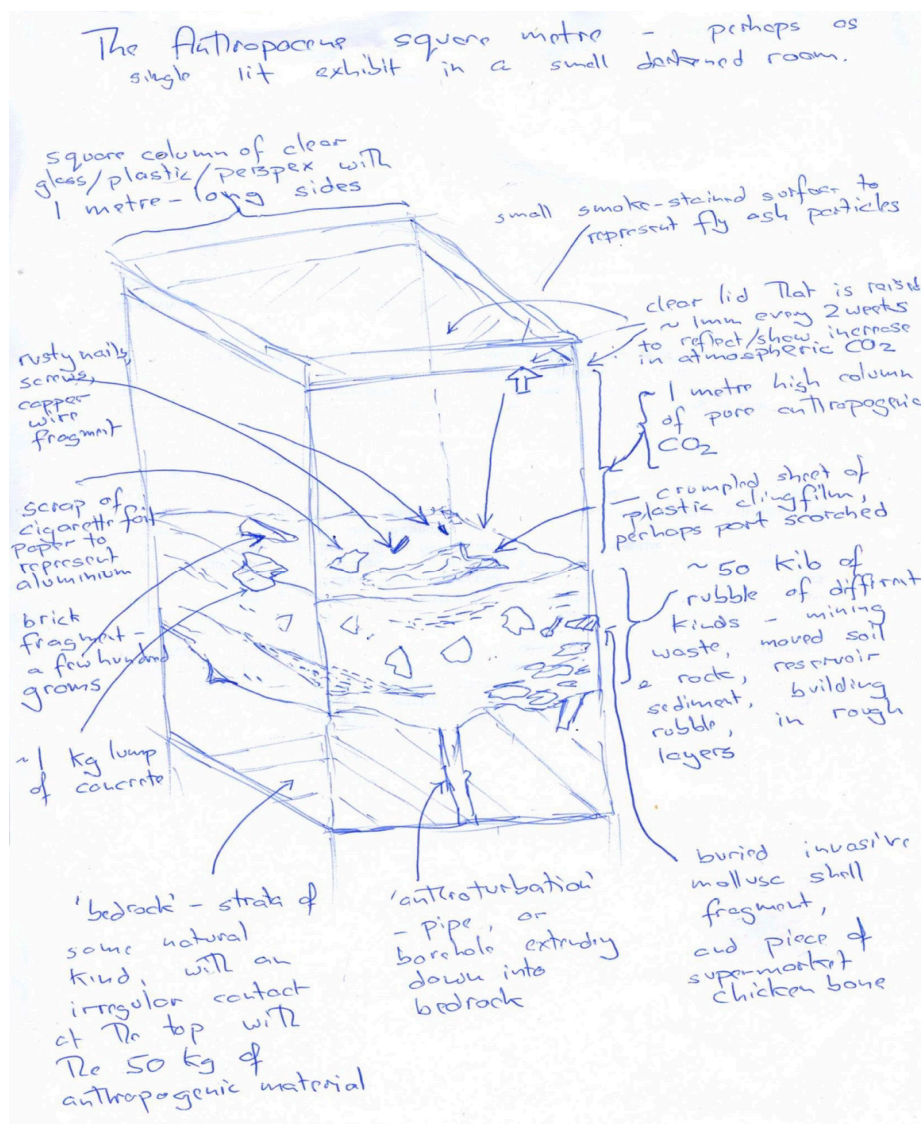 The Anthropocene square metre - perhaps as
single lit exhibit in a small darkened room.
square column of clear
glass/plastic/perspex with
1 metre-long sides
small smoke-stained surface to
represent fly ash particles
clear lid that is raised
~ 1mm every 2 weeks
to reflect/show increase
in atmospheric CO2
~ 1 metre high column
of pure anthropogenic
CO2
crumpled sheet of
plastic clingfilm,
perhaps part scorched
~ 50 kib of
rubble of different
kinds - mining
waste, moved soil
& rock, reservoir
sediment, building
rubble, in rough
layers
rusty nails,
screws,
copper
wire
fragment
scrap of
cigarette foil
paper to
represent
aluminium
brick
fragment -
a few hundred
grams
~1 kg lump
of concrete
'bedrock' - strata of
some natural
kind, with an
irregular contact
at the top with
the 50 kg of
anthropogenic material
'anthroturbation'
- pipe, or
borehole extending
down into
bedrock
buried invasive
mollusc shell
fragment,
and piece of
supermarket
chicken bone